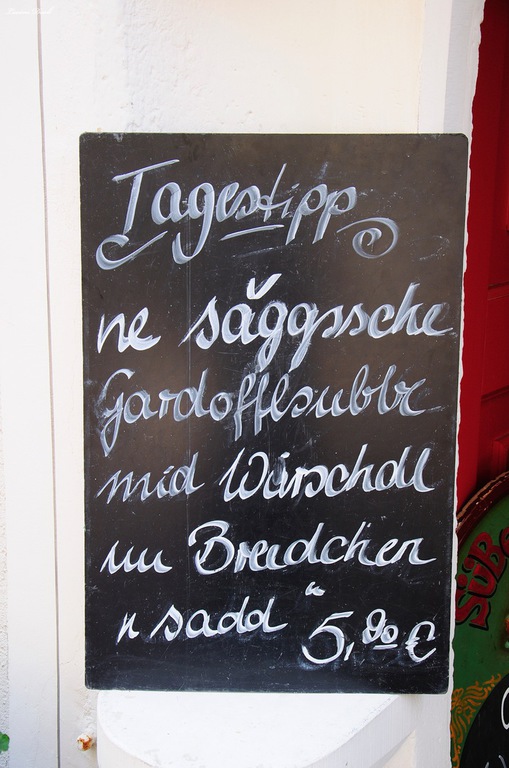 Tagestipp
ne săggssche
Gardofflsubbe
mid Würschdl
un Breedchen
"sadd" 5,90 €
Süße